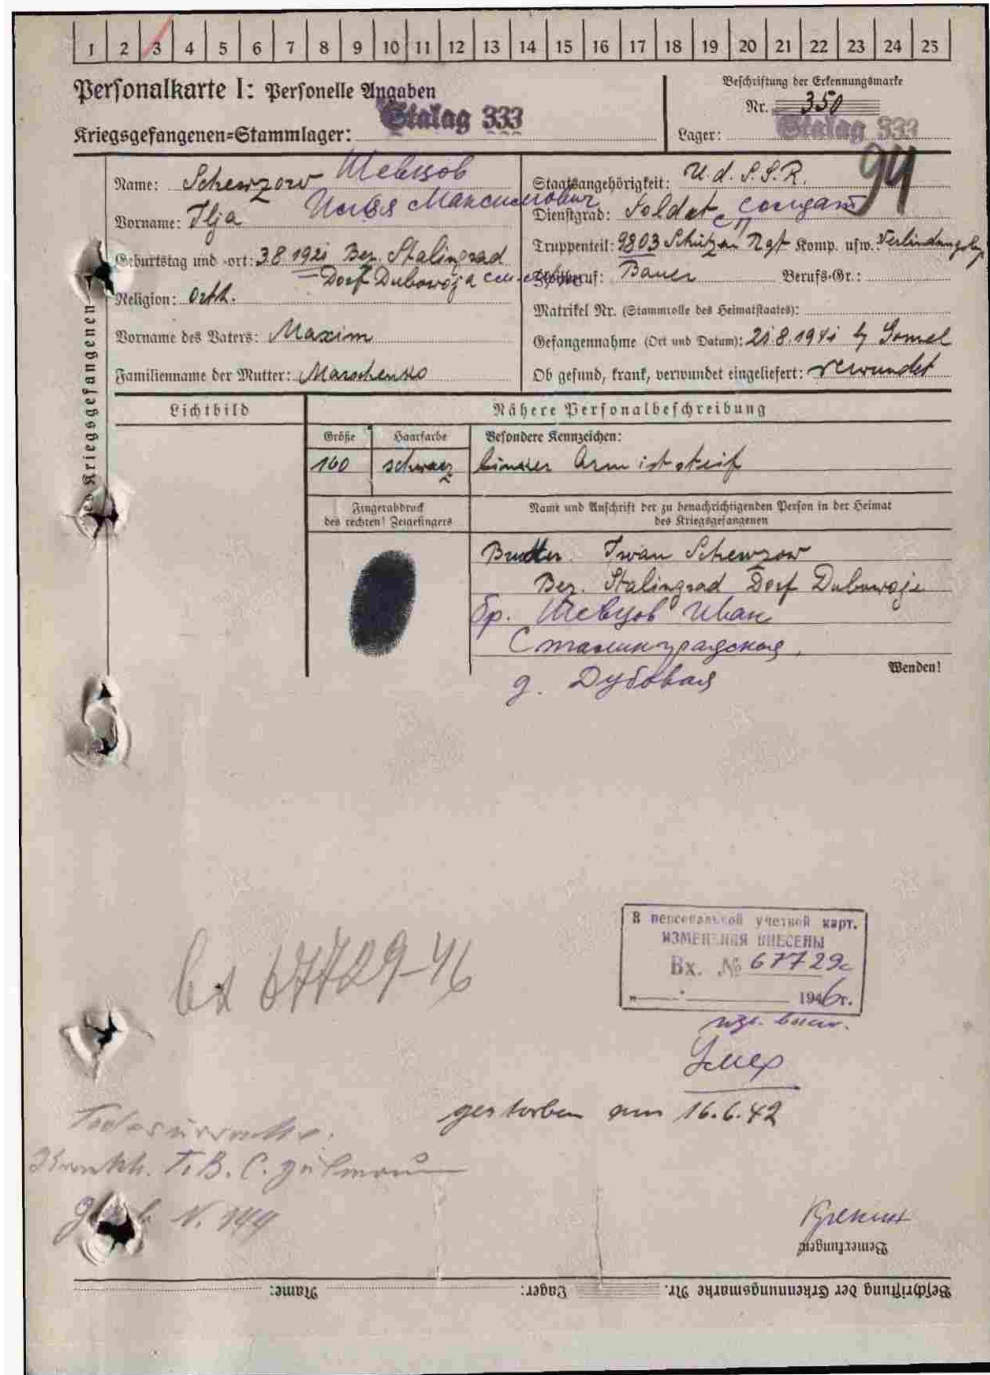 1 2 3 4 5 6 7 8 9 10 11 12 13 14 15 16 17 18 19 20 21 22 23 24 25
Personalkarte I: Personelle Angaben
Kriegsgefangenen-Stammlager: Stalag 333
Beschriftung der Erkennungsmarke
Nr. 350
Lager: Stalag 333
94
des Kriegsgefangenen
Name: Schewzow Шевцов
Vorname: Ilja Илья Максимович
Geburtstag und -ort: 3.8.1921 Bez. Stalingrad
Dorf Dubowoja
Religion: Orth.
Vorname des Vaters: Maxim
Familienname der Mutter: Marschenko
Staatsangehörigkeit: U.d.S.S.R.
Dienstgrad: Soldat солдат
Truppenteil: 9803 Schützen Rgt Komp. usw.
Bauer Berufs-Gr.:
Matrikel Nr. (Stammrolle des Heimatstaates):
Gefangennahme (Ort und Datum): 21.8.1941 b/ Gomel
Ob gesund, krank, verwundet eingeliefert: verwundet
Lichtbild
Nähere Personalbeschreibung
Größe Haarfarbe Besondere Kennzeichen:
160 schwarz linker Arm ist steif
Fingerabdruck
des rechten! Zeigefingers
Name und Anschrift der zu benachrichtigenden Person in der Heimat
des Kriegsgefangenen
Bruder Iwan Schewzow
Bez. Stalingrad Dorf Dubowoje
бр. Шевцов Иван
Сталинградская,
д. Дубовая
Wenden!
В персональной учетной карт.
ИЗМЕНЕНИЯ ВНЕСЕНЫ
Вх. № 67729с
1946г.
Умер
вх 67729-46
gestorben am 16.6.42
Todesursache:
Krankh. T.B.C.
N. 144
Bemerkungen
Beschriftung der Erkennungsmarke Nr. Lager: Name: